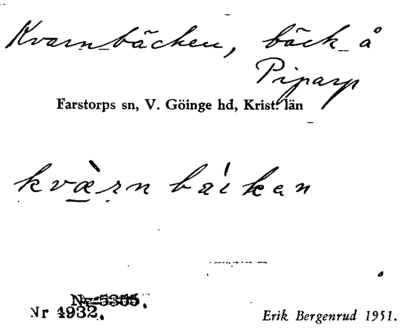 Kvarnbäcken, bäck å
Piparp
Farstorps sn, V. Göinge hd, Krist. län
kvæ̀rnbák̄en
Nr 5355.
Nr 4932.
Erik Bergenrud 1951.